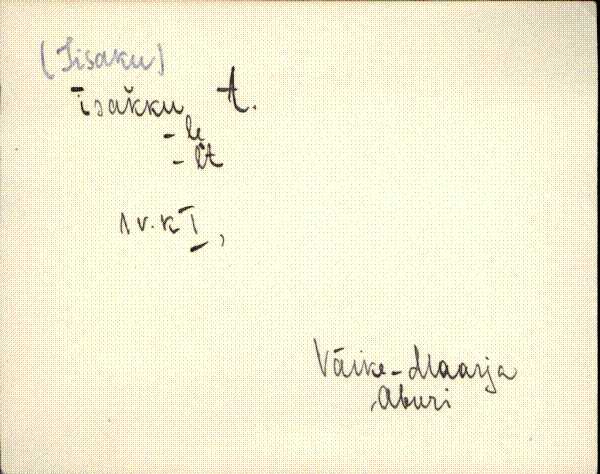 (Iisaku)
īsak̆ku t.
-le
-lt
1 v. k I,
Väike-Maarja
Aburi